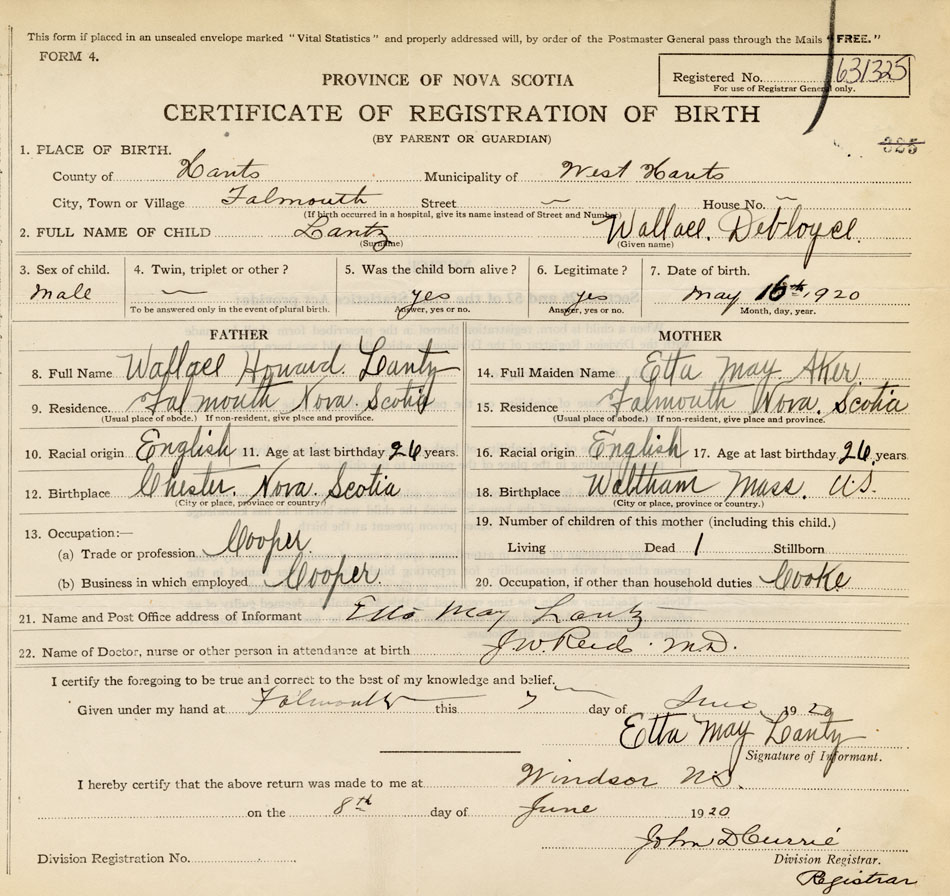 This form if placed in an unsealed envelope marked "Vital Statistics" and properly addressed will, by order of the Postmaster General pass through the Mails "FREE."
FORM 4.
PROVINCE OF NOVA SCOTIA
Registered No. 631325
For use of Registrar General only.
CERTIFICATE OF REGISTRATION OF BIRTH
(BY PARENT OR GUARDIAN)
325
1. PLACE OF BIRTH.
County of Hants Municipality of West Hants
City, Town or Village Falmouth Street — House No. —
(If birth occurred in a hospital, give its name instead of Street and Number)
2. FULL NAME OF CHILD Lantz Wallace. Debloyce.
(Surname) (Given name)
3. Sex of child. 4. Twin, triplet or other? 5. Was the child born alive? 6. Legitimate? 7. Date of birth.
Male — yes yes May 16th, 1920
To be answered only in the event of plural birth. Answer, yes or no. Answer, yes or no. Month, day, year.
FATHER MOTHER
8. Full Name Wallace Howard. Lantz 14. Full Maiden Name Etta May Aker.
9. Residence. Falmouth Nova. Scotia 15. Residence Falmouth Nova. Scotia
(Usual place of abode.) If non-resident, give place and province. (Usual place of abode.) If non-resident, give place and province.
10. Racial origin English 11. Age at last birthday 26 years. 16. Racial origin English 17. Age at last birthday 26 years
12. Birthplace Chester. Nova. Scotia 18. Birthplace Waltham Mass. U.S.
(City or place, province or country.) (City or place, province or country.)
13. Occupation:— 19. Number of children of this mother (including this child.)
(a) Trade or profession Cooper. Living Dead 1 Stillborn
(b) Business in which employed Cooper. 20. Occupation, if other than household duties Cooke
21. Name and Post Office address of Informant Etta May Lantz
22. Name of Doctor, nurse or other person in attendance at birth J.W. Reid. M.D.
I certify the foregoing to be true and correct to the best of my knowledge and belief.
Given under my hand at Falmouth this 7 day of June 1920
Etta May Lantz
Signature of Informant.
I hereby certify that the above return was made to me at Windsor N.S.
on the 8th day of June 1920
John D Currie
Division Registration No. Division Registrar.
Registrar